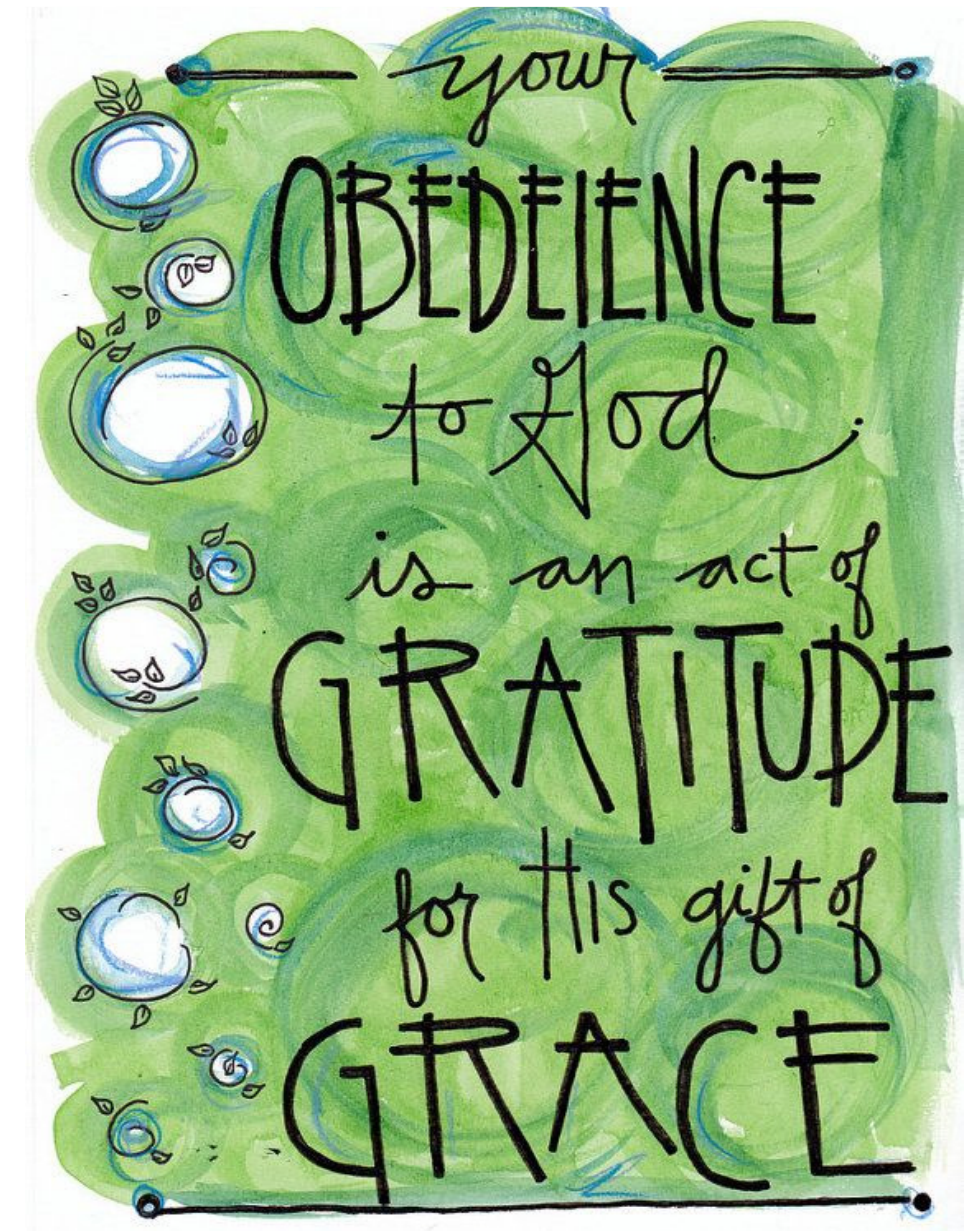 your
OBEDEIENCE
to God
is an act of
GRATITUDE
for HIS gift of
GRACE